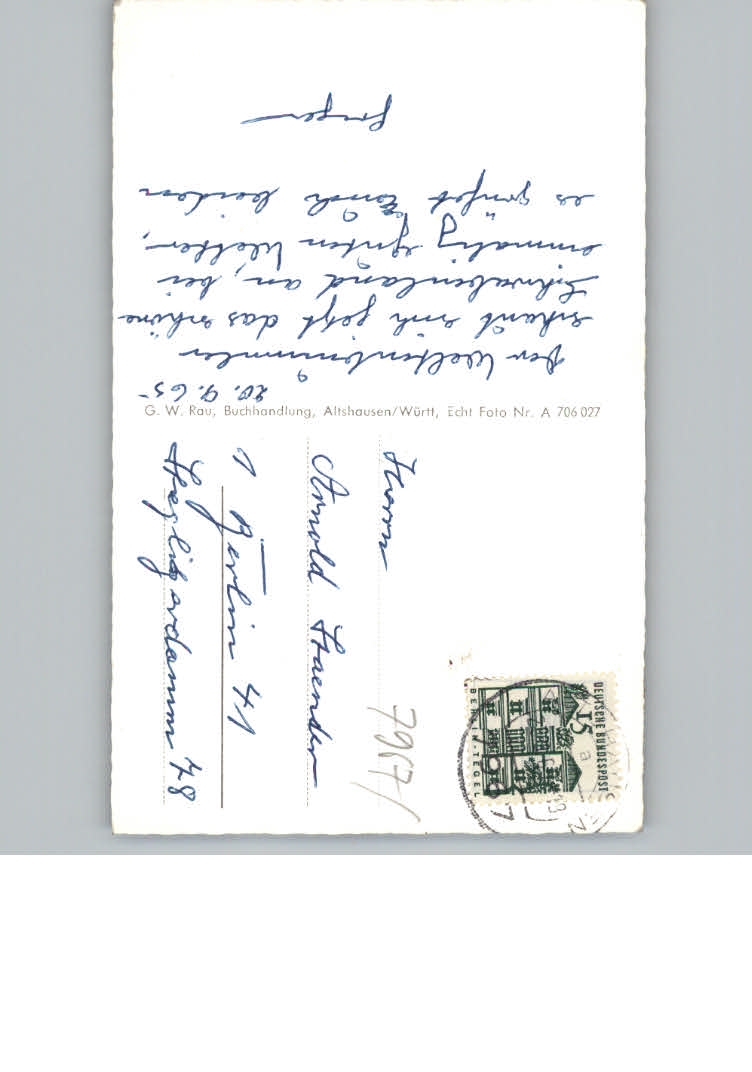 20.9.65
Der Weltenbummler
schaut sich jetzt das schöne
Schwabenland an, bei
einmalig guten Wetter,
es grüßt Euch beiden
G. W. Rau, Buchhandlung, Altshausen/Württ, Echt Foto Nr. A 706 027
DEUTSCHE BUNDESPOST
15
BERLIN-TEGEL
7967/
Herrn
Arnold Staender
1 Berlin 41
Steglitzerdamm 78